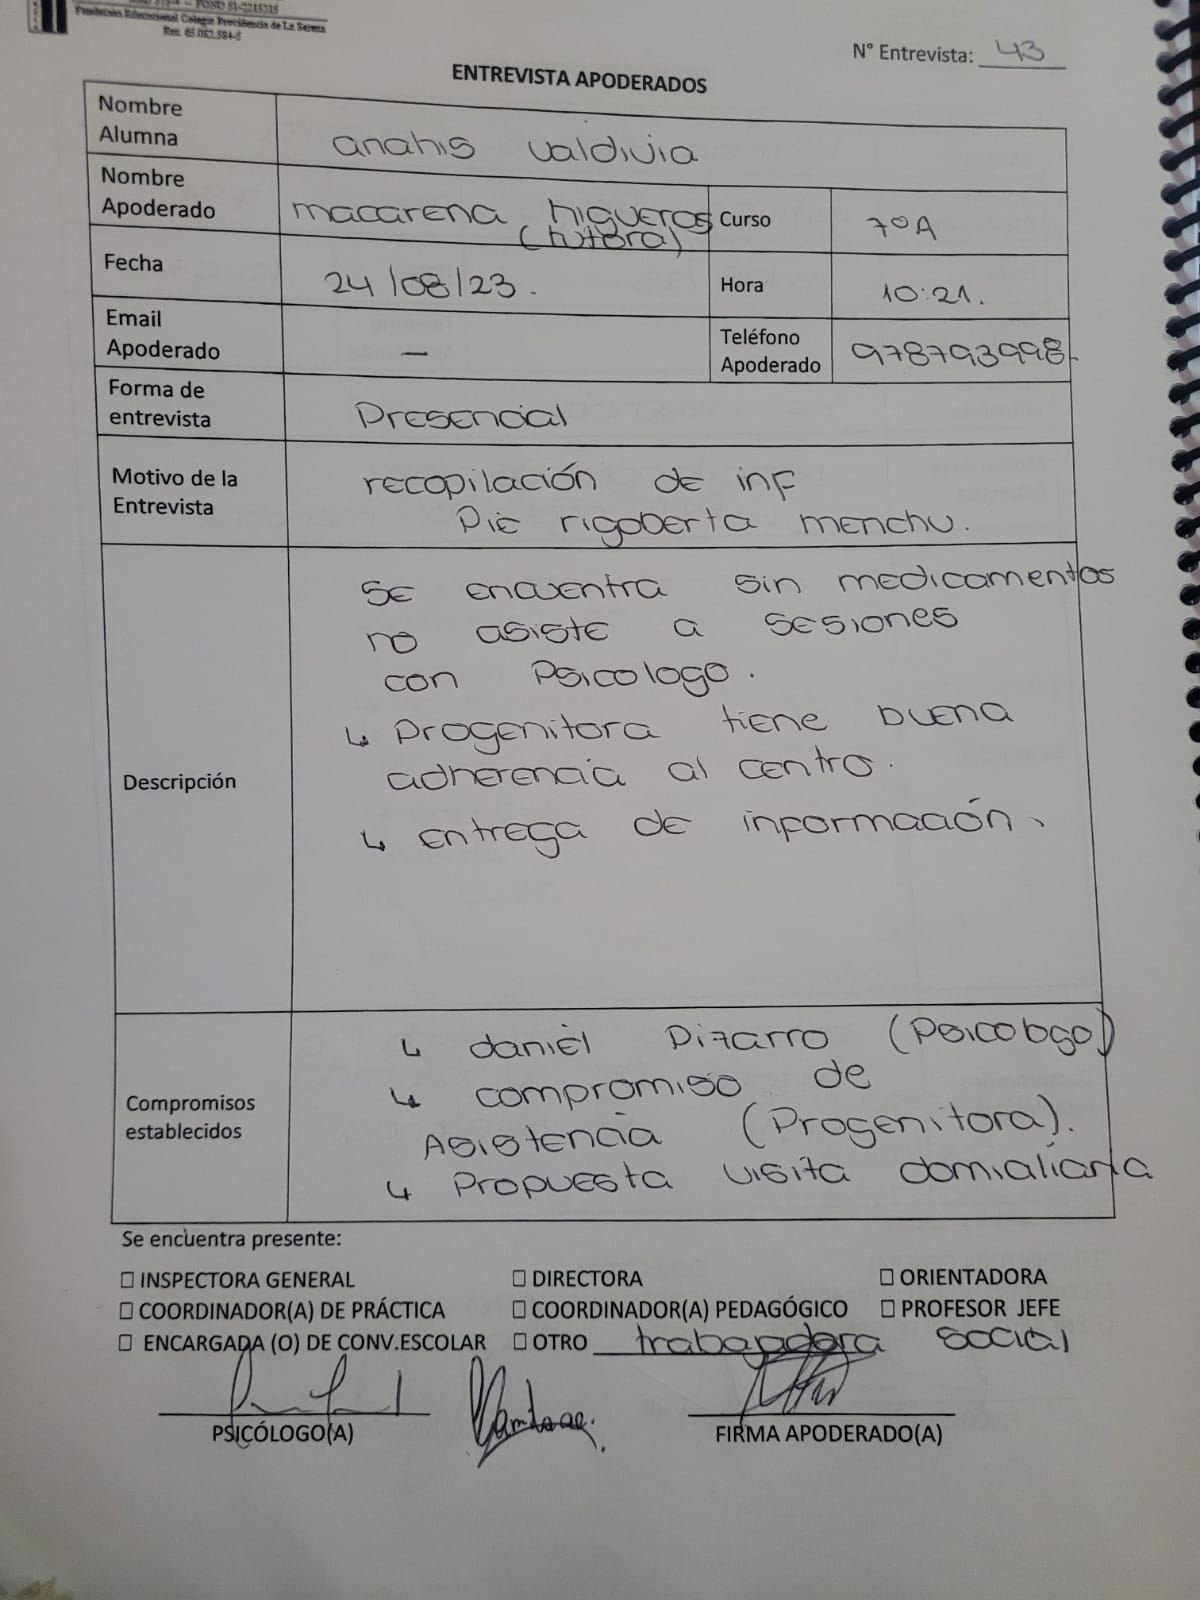 FONO 51-2215215
Fundación Educacional Colegio Providencia de La Serena
Rut: 65.052.584-5
N° Entrevista: 43
ENTREVISTA APODERADOS
Nombre Alumna anahis valdivia
Nombre Apoderado macarena higueros (tutora) Curso 7°A
Fecha 24/08/23. Hora 10:21.
Email Apoderado — Teléfono Apoderado 978793998
Forma de entrevista Presencial
Motivo de la Entrevista recopilación de inf
Pie rigoberta menchu.
Descripción
se encuentra sin medicamentos
no asiste a sesiones
con Psicologo.
↳ Progenitora tiene buena
adherencia al centro.
↳ entrega de información.
Compromisos establecidos
↳ daniel Pizarro (Psicologo)
↳ compromiso de
Asistencia (Progenitora).
↳ Propuesta visita domiciliaria
Se encuentra presente:
☐ INSPECTORA GENERAL ☐ DIRECTORA ☐ ORIENTADORA
☐ COORDINADOR(A) DE PRÁCTICA ☐ COORDINADOR(A) PEDAGÓGICO ☐ PROFESOR JEFE
☐ ENCARGADA (O) DE CONV.ESCOLAR ☐ OTRO trabajadora social
PSICÓLOGO(A) FIRMA APODERADO(A)